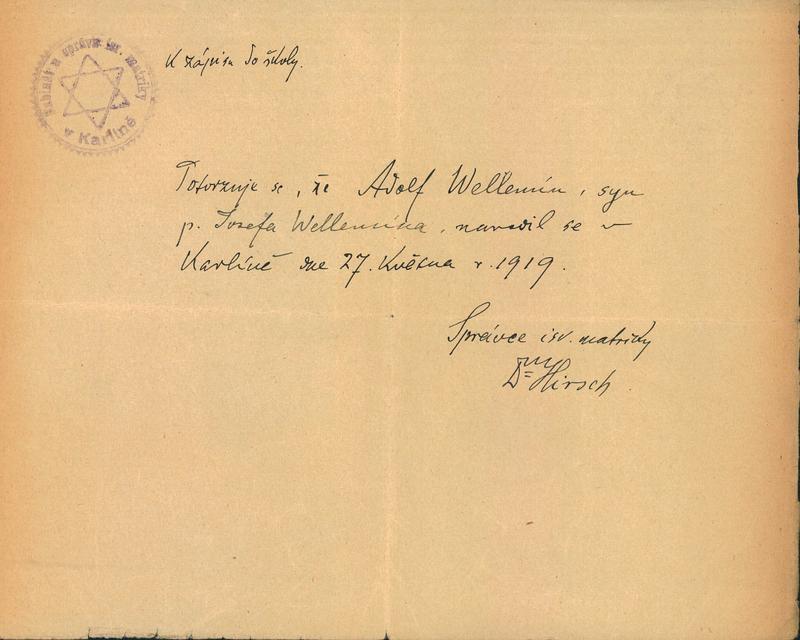 Rabinát a správa isr. matriky v Karlíně
K zápisu do školy.
Potvrzuje se, že Adolf Wellemín, syn
p. Josefa Wellemína, narodil se v
Karlíně dne 27. Května r. 1919.
Správce isr. matriky
Dr Hirsch